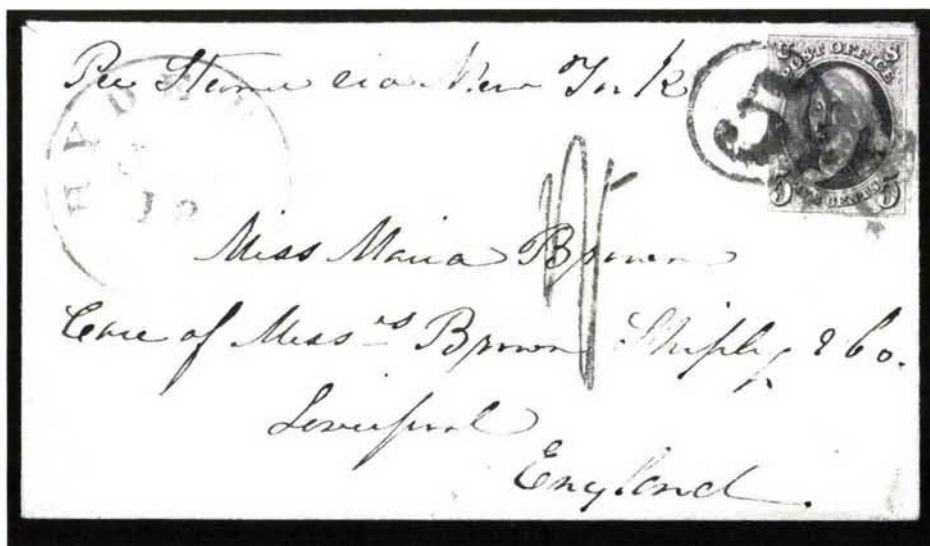 Per Steamer via New York
5
5 5
POST OFFICE
FIVE CENTS
5 5
12
Miss Maria Brown
Care of Mess.rs Brown Shipley & Co.
Liverpool
England.